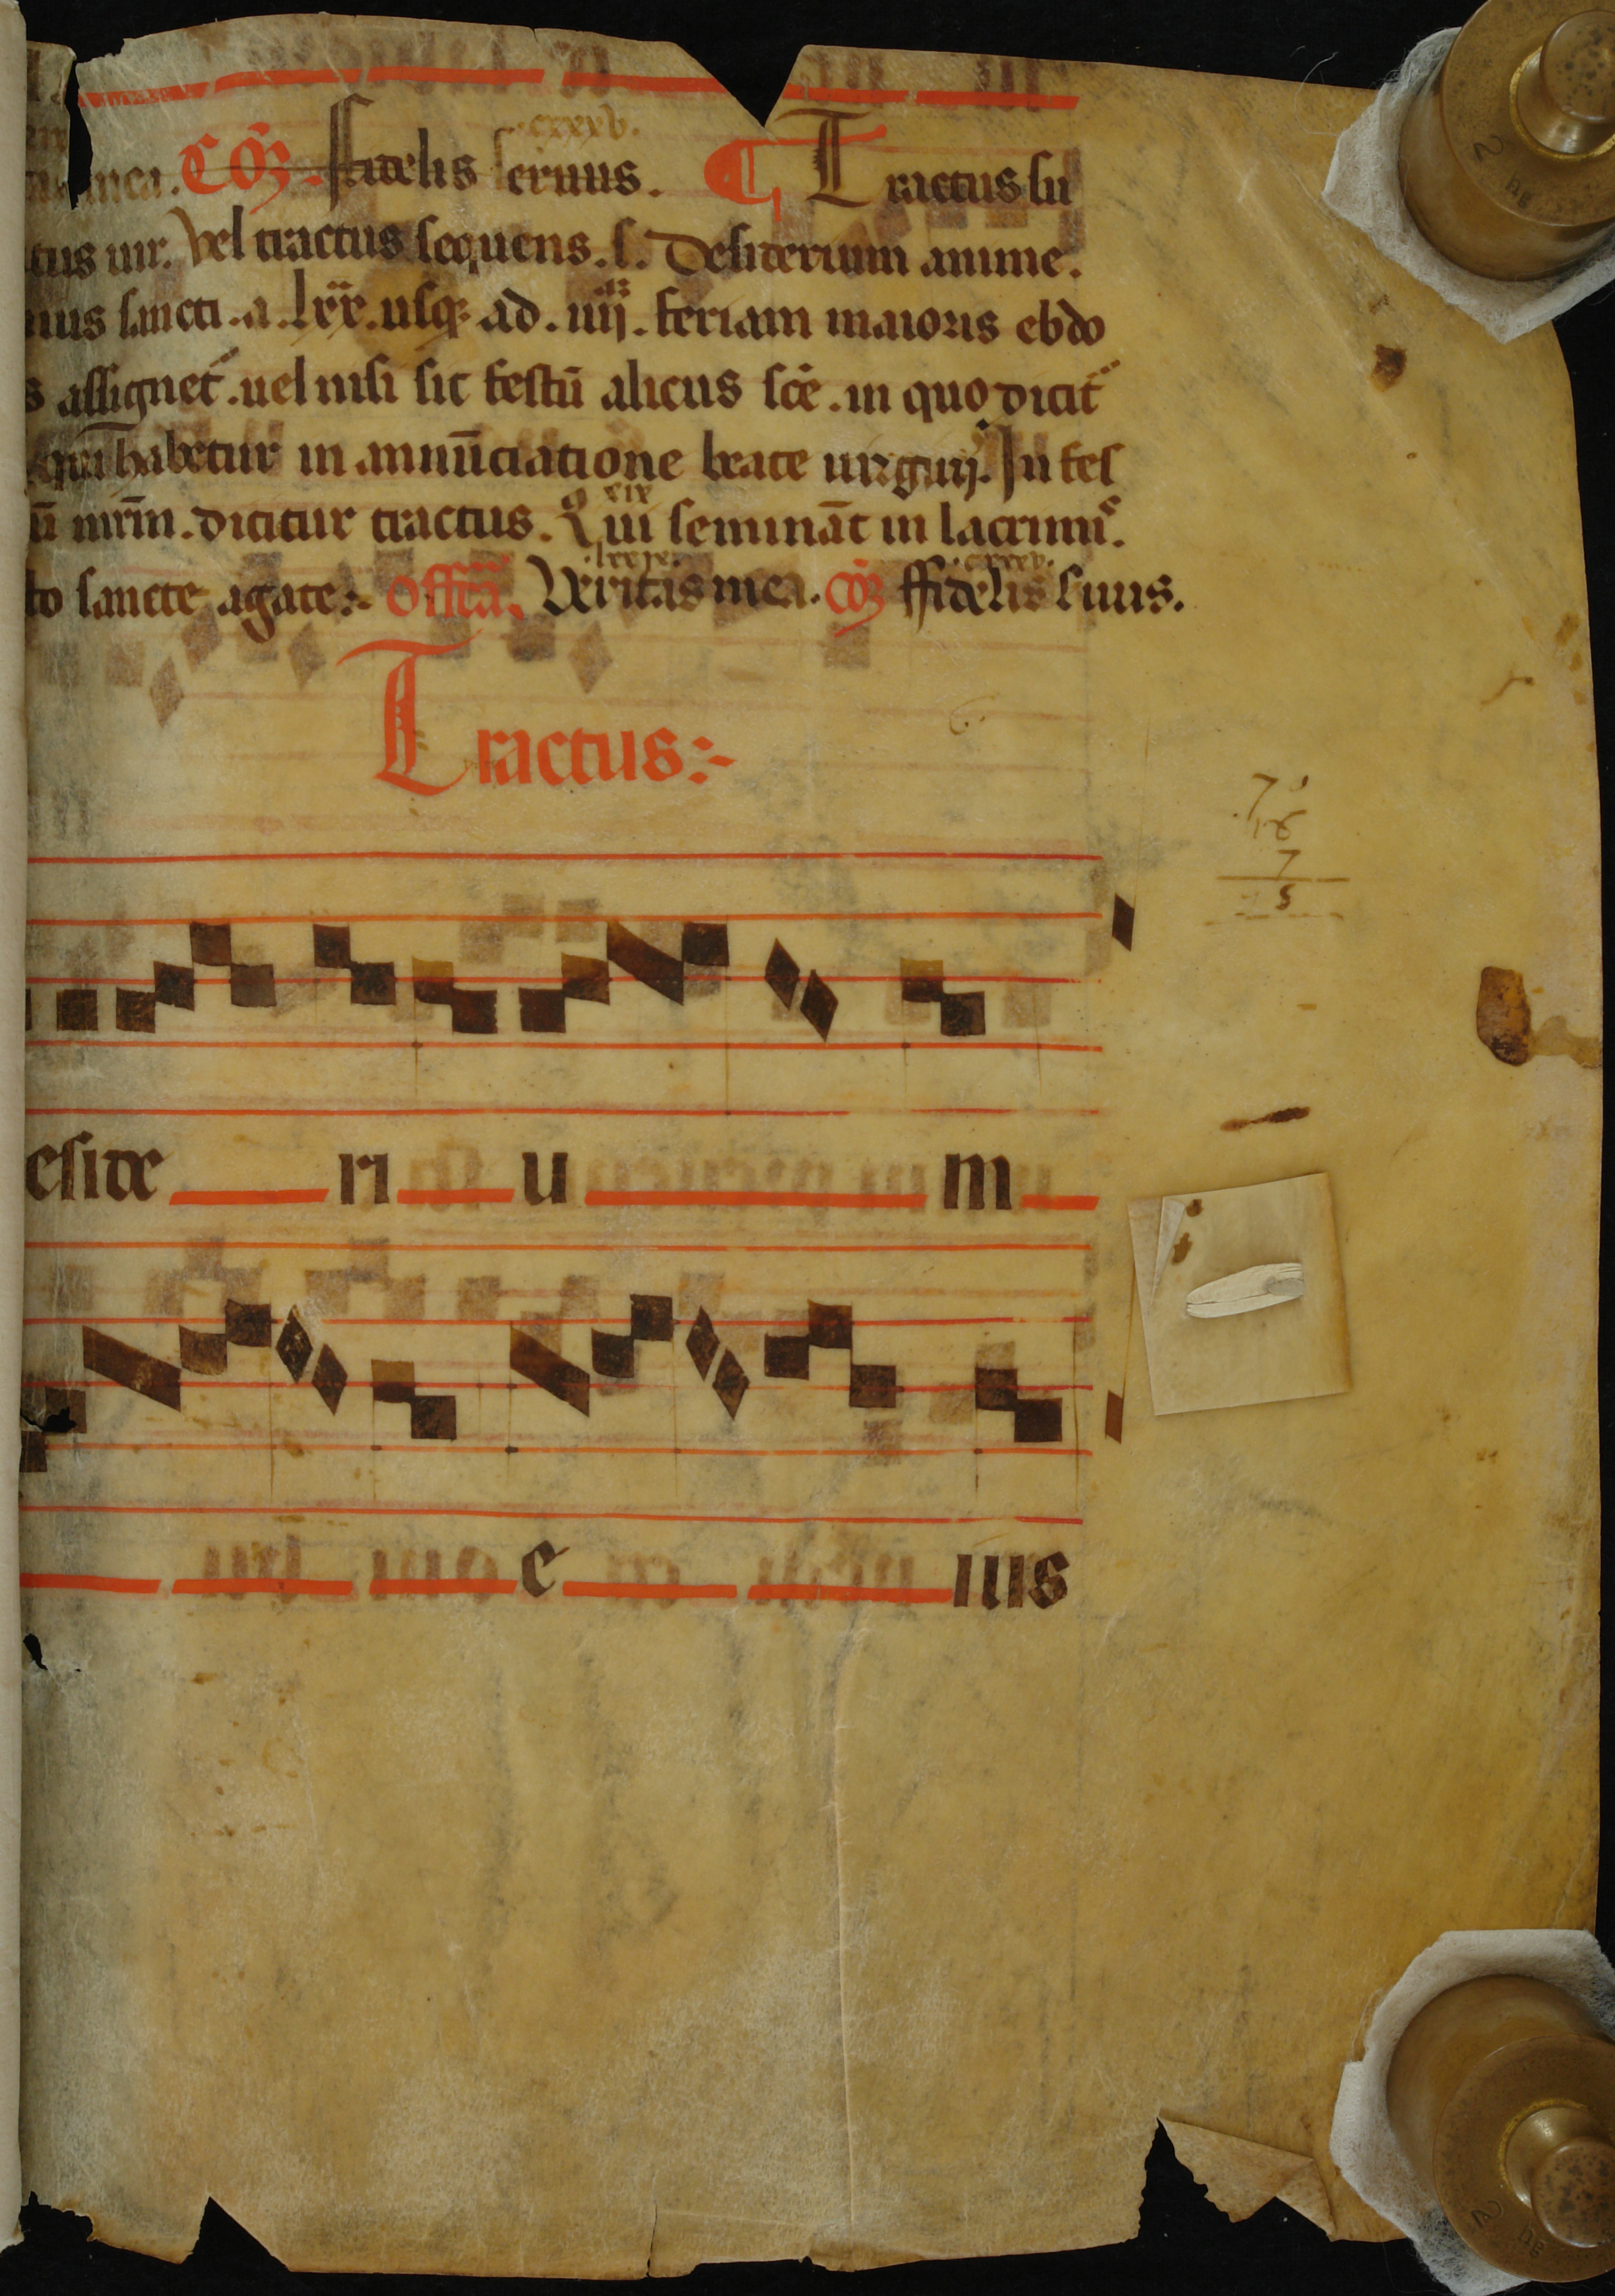 cxxxv.
mea. Cōȝ. ffidelis seruus. ¶ Tractus su
tus uir. Vel tractus sequens. s. Desiderium anime.
nius sancti. a. lxx. usqȝ ad. iiij. feriam maioris ebdo
s assignet. uel nisi sic festū alicus scē. in quo dicit
qui habetur in annūciatione beate uirginis. In fes
ū mr̄m. dicitur tractus. Qui semināt in lacrimis.
xix
lxxix. cxxxv.
to sancte agate:- Offēa. Veritas mea. Cōȝ ffidelis suus.
Tractus:-
7
16
7
5
eside ri u m
e ius